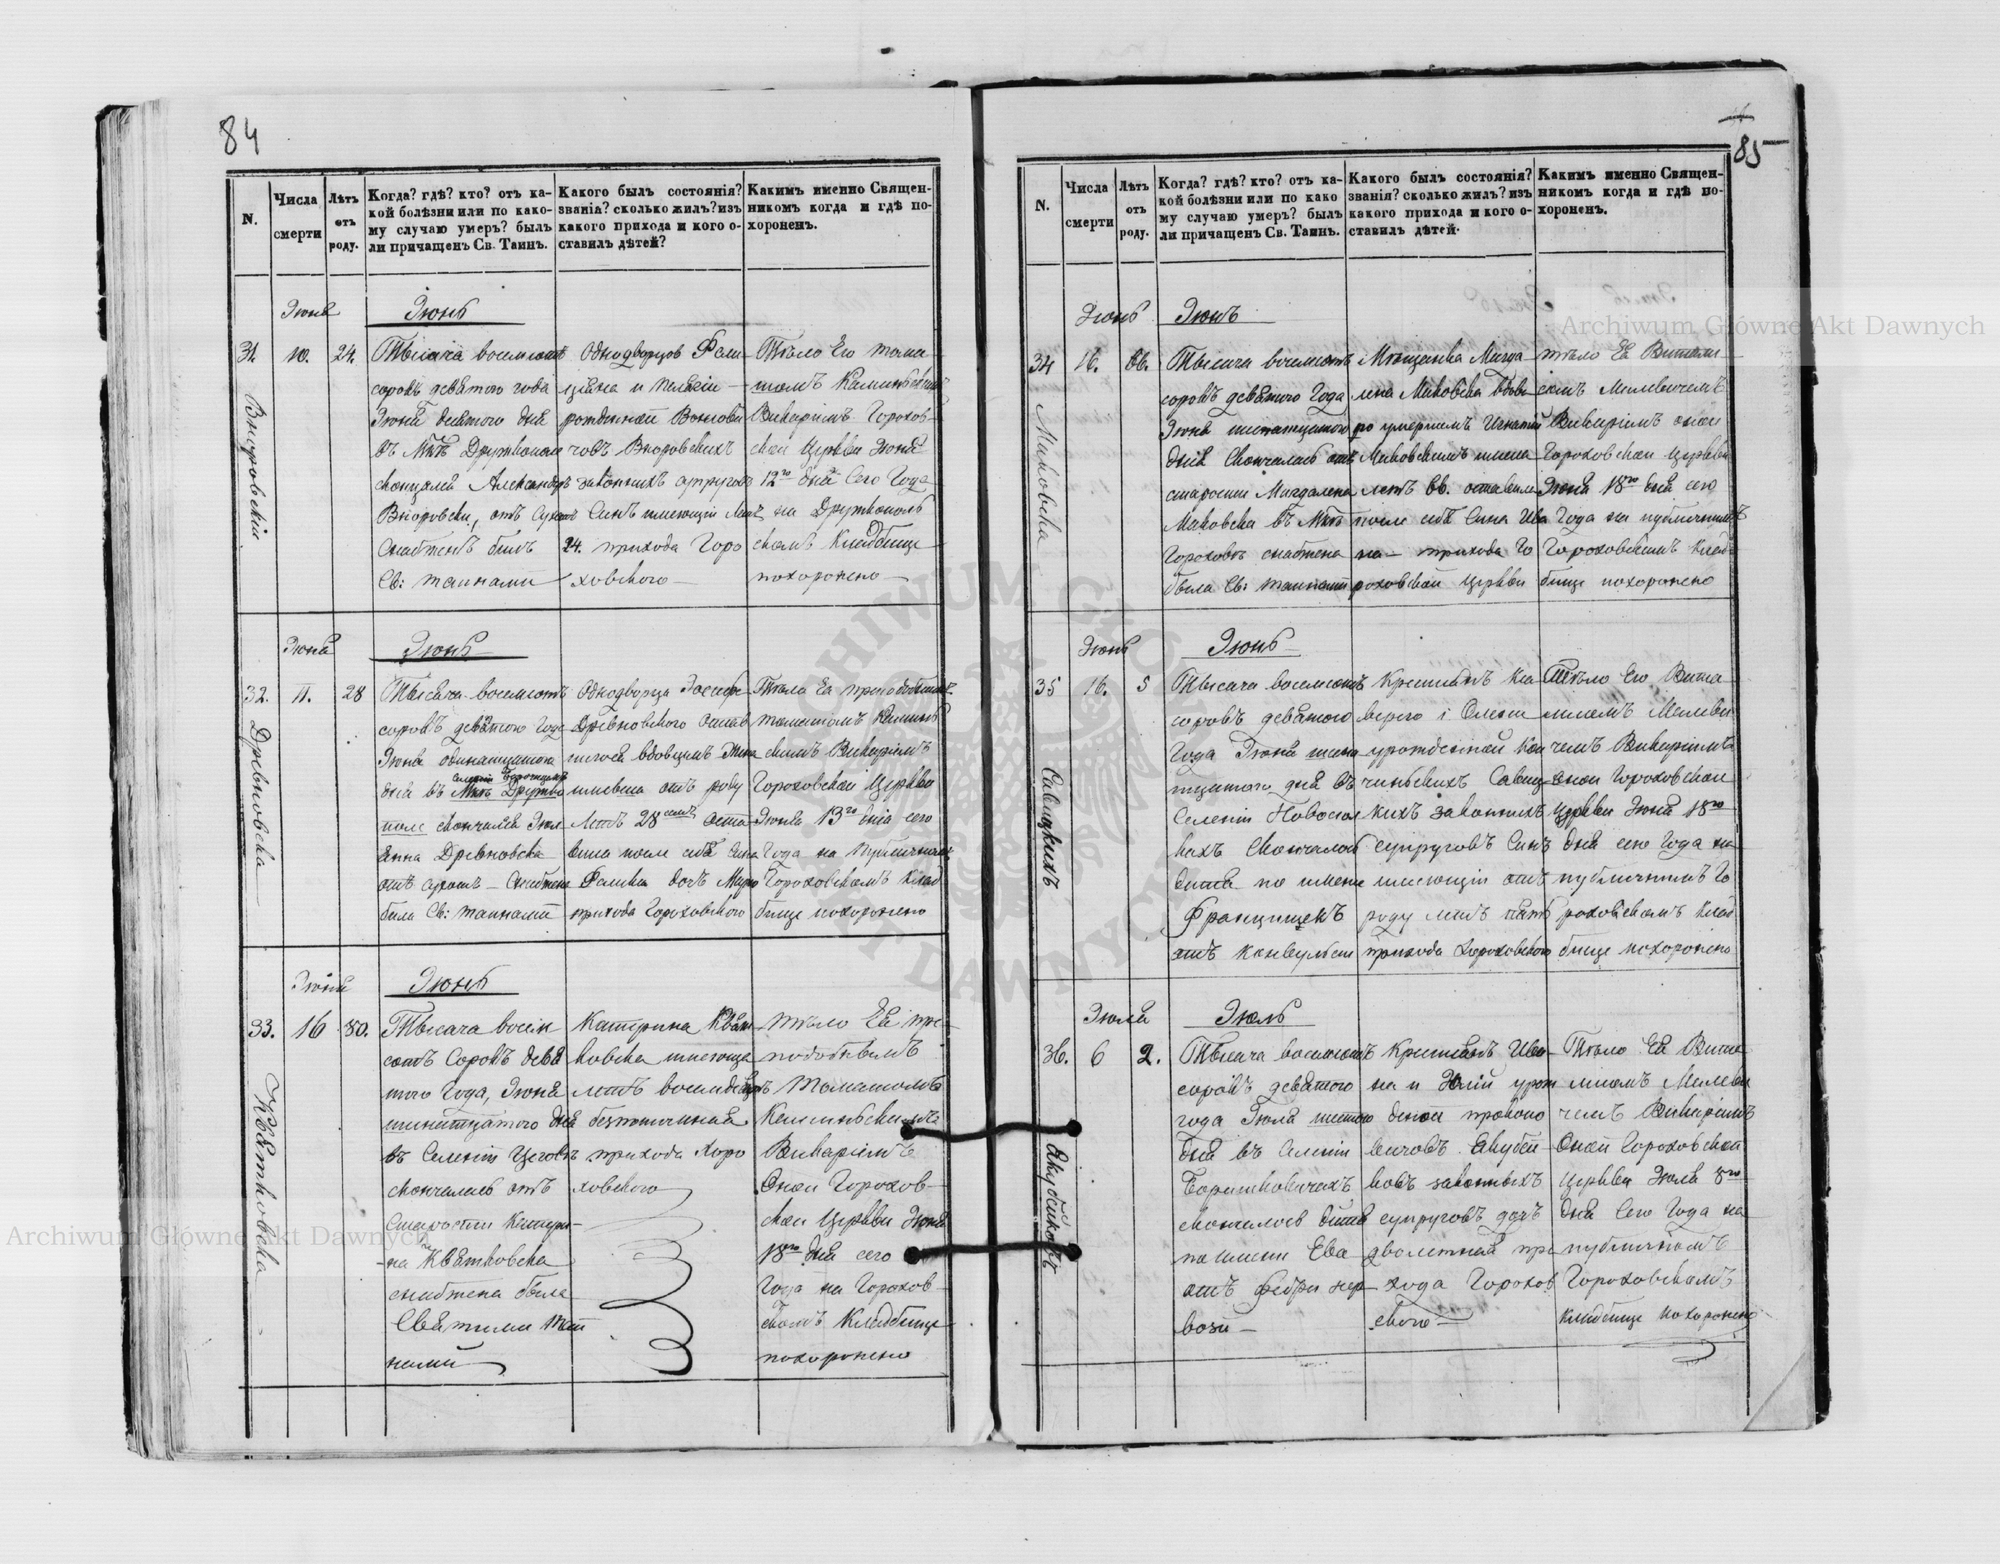 84
N.
Числа
смерти
Лѣтъ
отъ
роду.
Когда? гдѣ? кто? отъ ка-
кой болѣзни или по како-
му случаю умеръ? былъ
ли причащенъ Св. Таинъ.
Какого былъ состоянія?
званія? сколько жилъ? изъ
какого прихода и кого о-
ставилъ дѣтей?
Какимъ именно Священ-
никомъ когда и гдѣ по-
хороненъ.
Іюня
Іюнь
31.
10.
24.
Вноровскій
Тысяча восемсотъ
сорокъ девятого года
Іюня десятого дня
въ Мкѣ Дружкополи
скончался Александръ
Вноровски, отъ сухотъ
снабженъ былъ
Св: таинами
Однодворцов Фели
ціяна и Пелягіи
рожденной
човъ Вноровскихъ
законныхъ супруговъ
Сынъ имеющій летъ
24. прихода Горо
ховского
Тѣло Его Тома
шомъ Каминьскимъ
Викаріемъ Горохов-
скои Церкви Іюня
12го дня сего Года
на Дружкополь
скомъ Кладбище
похоронено
Іюня
Іюнь
32.
11.
28
Древновска
Тысяча восемсотъ
сорокъ девятого Года
Іюня одинатцатого
дня въ Мкѣ Дружко
поле скончалась Юли
янна Древновска
отъ сухотъ снабжена
была Св: таинами
Однодворца Іосифа
Древновского остав
шегося вдовцемъ Жена
имевша отъ роду
Летъ 28 остa
вила после себя Сына
Феликса дочь
прихода Гороховского
Тѣло Ея преподобнымъ
Томашомъ Каминь
скимъ Викаріемъ
Гороховской Церкви
Іюня 13го дня сего
Года на Публичномъ
Гороховскомъ Клад
бище похоронено
Іюня
Іюнь
33.
16
80.
Квятковска
Тысяча восем
сотъ Сорокъ девя
того Года, Іюня
шеснатцатого дня
въ Селеніи Цеговъ
скончалась отъ
Старости Катери-
на Квятковска
снабжена была
Святыми Таи
нами
Катерина Квят
ковска имеюща
летъ восемдесятъ
безпотомная
прихода Горо
ховского
тѣло Ея пре-
подобнымъ
Томашомъ
Каминьскимъ
Викаріемъ
Онои Горохов-
скои Церкви Іюня
18го дня сего
Года на Горохов-
скомъ Кладбище
похоронено
85
N.
Числа
смерти
Лѣтъ
отъ
роду.
Когда? гдѣ? кто? отъ ка-
кой болѣзни или по како
му случаю умеръ? былъ
ли причащенъ Св. Таинъ.
Какого былъ состоянія?
званія? сколько жилъ? изъ
какого прихода и кого о-
ставилъ дѣтей.
Какимъ именно Священ-
никомъ когда и гдѣ по-
хороненъ.
Іюнь
Іюнь
34
16.
66.
Маковска
Тысяча восемсотъ
сорокъ девятого Года
Іюня шеснатцатого
дня скончалась отъ
старости Магдалена
Маковска въ Мкѣ
Гороховѣ снабжена
была Св: таинами
Мещанка Магда
лена Маковска вдова
по умершемъ Игнатіи
Маковскимъ имела
летъ 66. оставила
после себя Сына Ива
на прихода Го
роховской Церкви
тѣло Ея Витали
сомъ Милевичемъ
Викаріемъ онои
Гороховскои Церкви
Іюня 18го дня сего
Года на публичномъ
Гороховскимъ Клад
бище похоронено
Іюня
Іюнь
35
16.
5
Савицкихъ
Тысяча восемсотъ
сорокъ девятого
Года Іюня шесна
тцатого дня въ
Селеніи Новосіол
кахъ Скончалось
дитя по имени
Францишекъ
отъ конвульсіи
Крестьянъ Кса
верего и Олены
урожденной
чиньскихъ Савиц
кихъ законныхъ
супруговъ Сынъ
имеющій отъ
роду летъ пять
прихода Гороховского
Тѣло Его Вита
лисомъ Милеви
чемъ Викаріемъ
онои Гороховскои
Церкви Іюня 18го
дня сего Года на
публичнымъ Го
роховскомъ Клад
бище похоронено
Іюля
Іюль
36.
6
2.
Якубюковъ
Тысяча восемсотъ
сорокъ девятого
года Іюля шестого
дня въ Селеніи
Борисковичахъ
скончалось дитя
по имени Ева
отъ фебри нер-
возн
Крестьянъ Ива-
на и Юлій урож
денои
вичовъ Якубю
ковъ законныхъ
супруговъ дочь
дволетняя при
хода Горохов
ского
Тѣло Ея Вита
лисомъ Милеви
чемъ Викаріемъ
Онои Гороховскои
Церкви Іюля 8го
дня сего Года на
публичномъ
Гороховскомъ
Кладбище похоронено
Archiwum Główne Akt Dawnych
Archiwum Główne Akt Dawnych